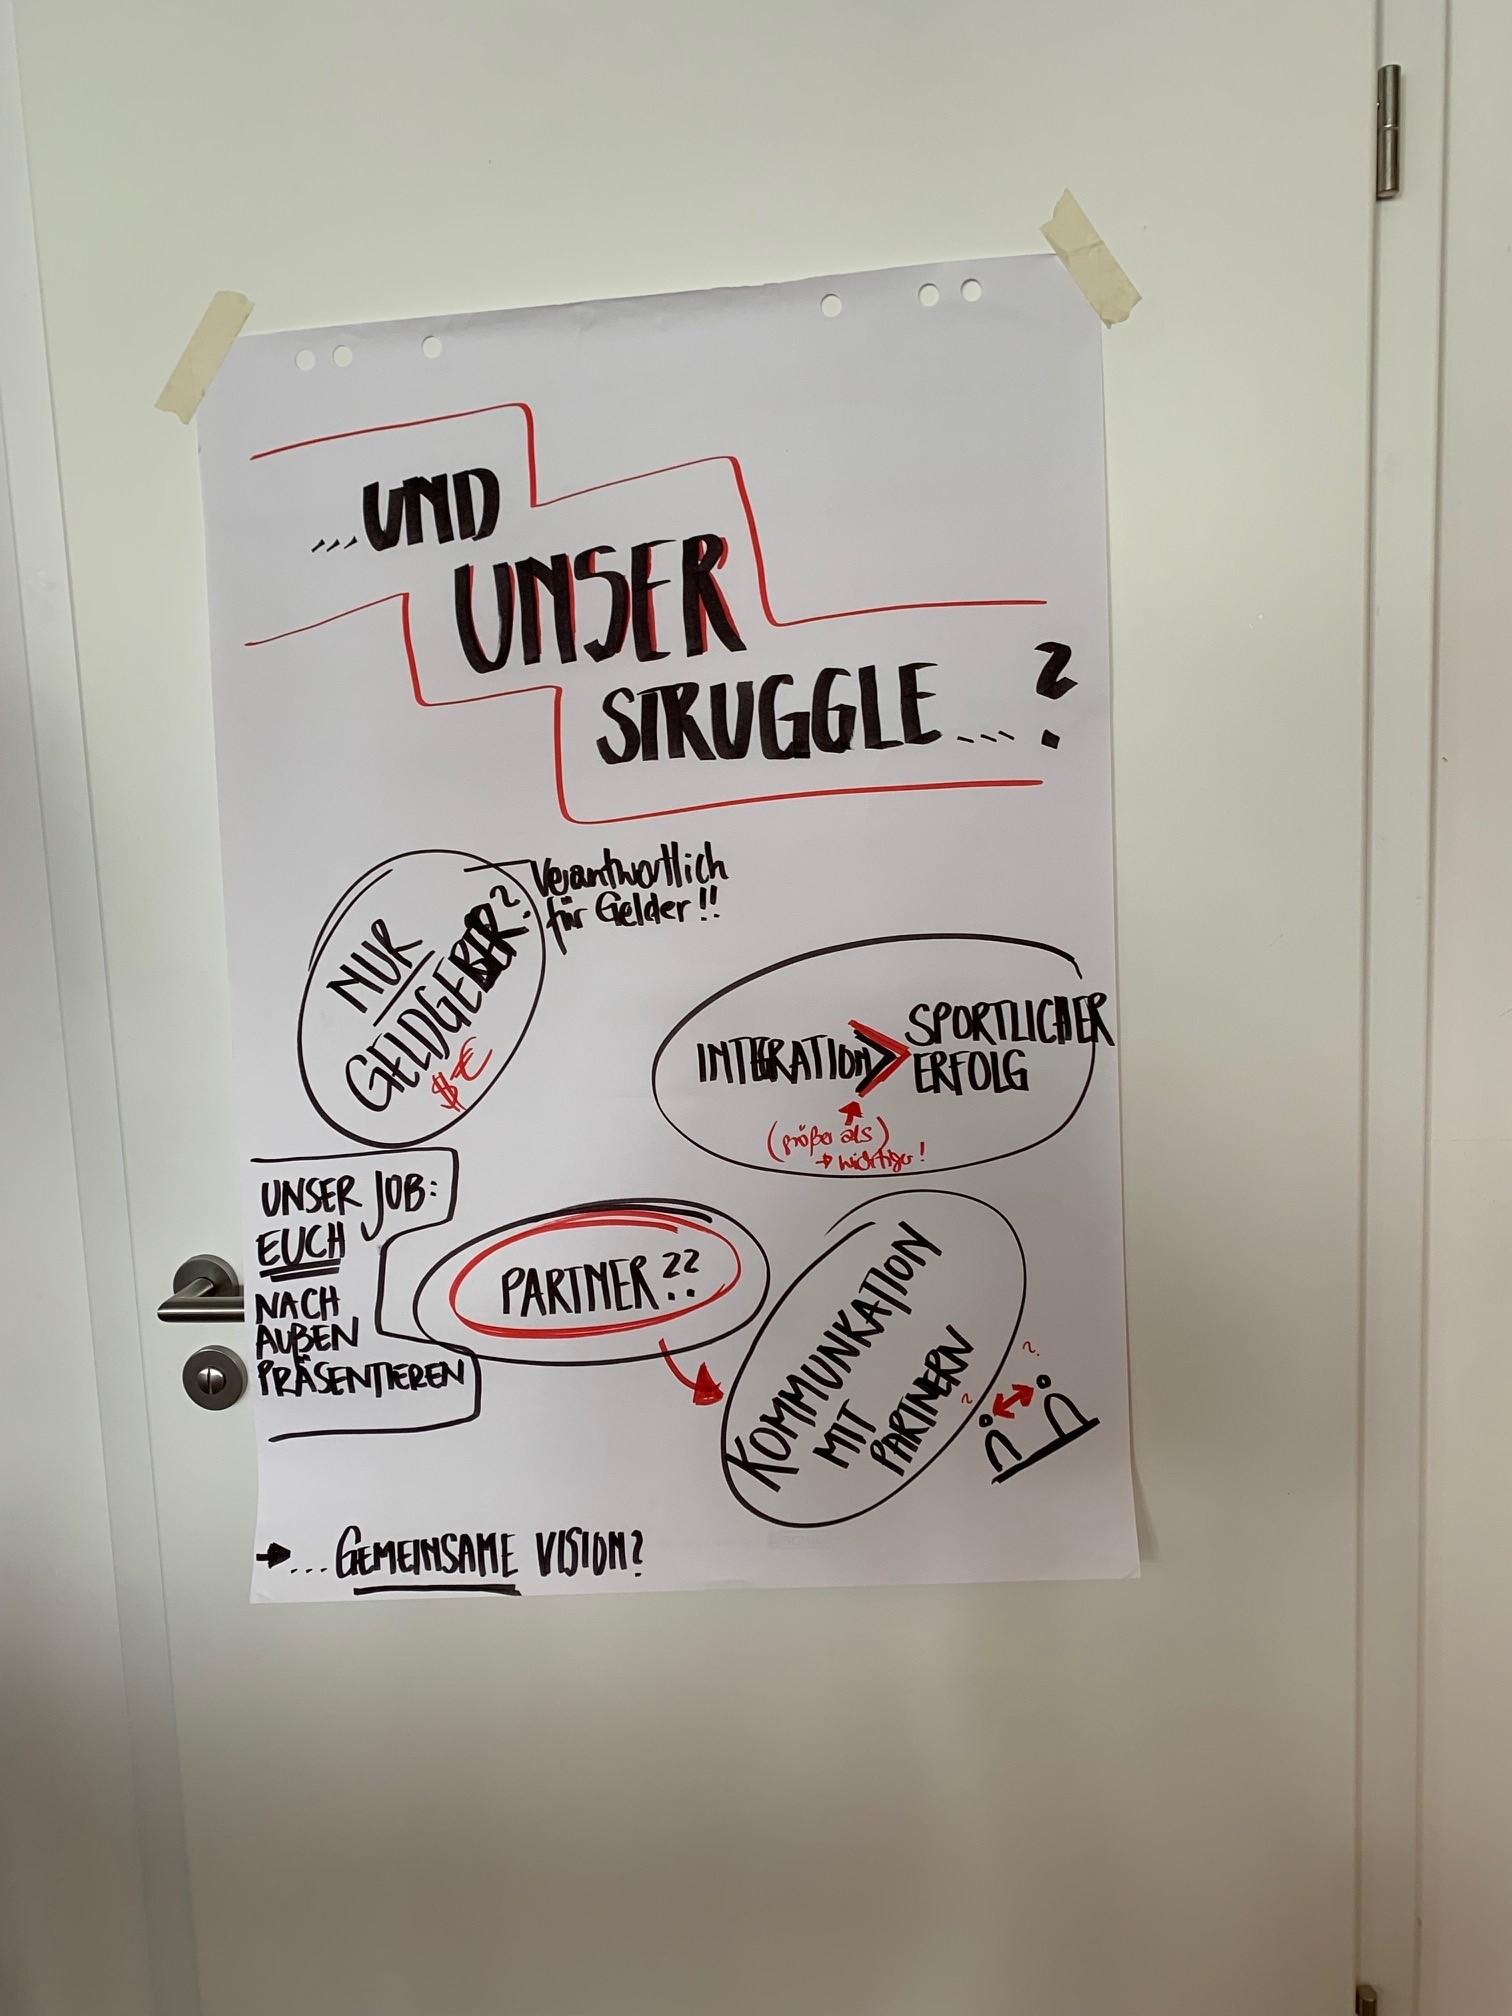 ...UND
UNSER
STRUGGLE...?
NUR
GELDGEBER?
$€
Verantwortlich
für Gelder!!
INTEGRATION > SPORTLICHER
ERFOLG
(größer als)
→ wichtiger!
UNSER JOB:
EUCH
NACH
AUßEN
PRÄSENTIEREN
PARTNER??
KOMMUNKATION
MIT
PARTNERN
? ?
→ ... GEMEINSAME VISION?